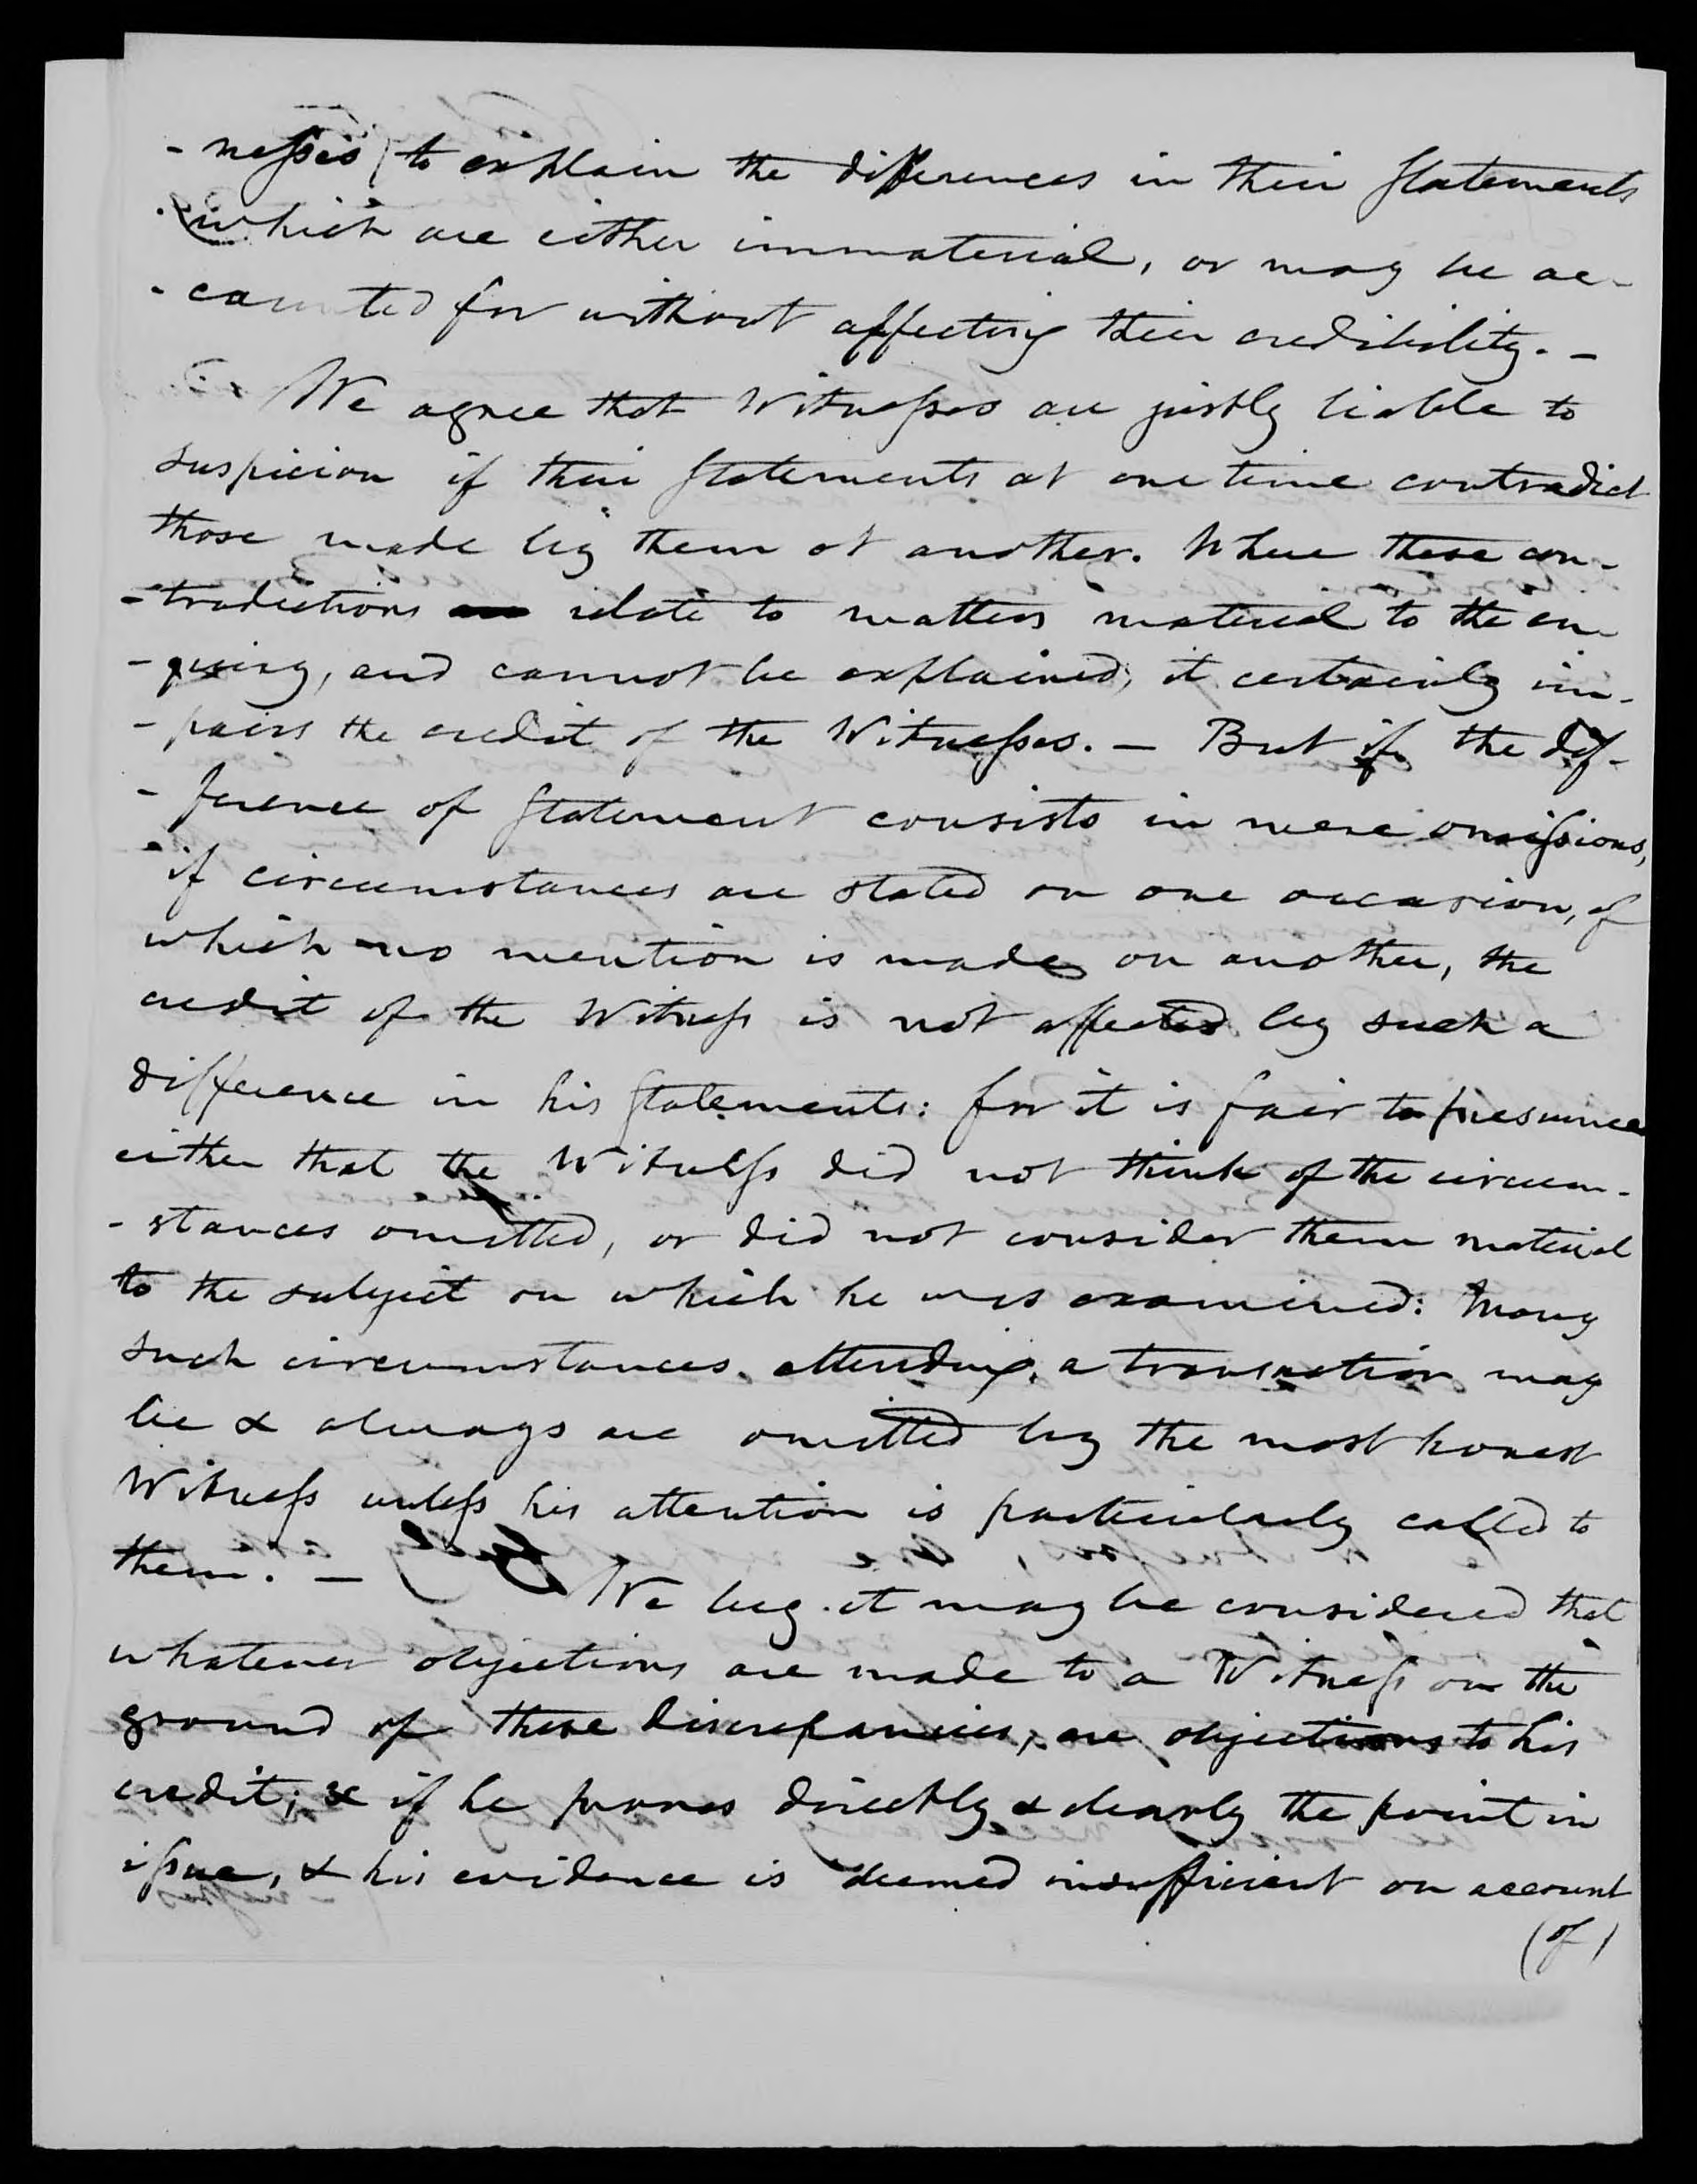 -nesses) to explain the differences in their Statements
which are either immaterial, or may be ac-
-counted for without affecting their credibility. -
We agree that Witnesses are justly liable to
suspicion if their Statements at one time contradict
those made by them at another. Where these con-
-tradictions relate to matters material to the en-
-quiry, and cannot be explained, it certainly im-
-pairs the credit of the Witnesses. - But if the dif-
-ference of Statement consists in mere omissions,
if circumstances are stated on one occasion, of
which no mention is made on another, the
credit of the Witness is not affected by such a
difference in his Statements: for it is fair to presume
either that the Witness did not think of the circum-
-stances omitted, or did not consider them material
to the subject on which he was examined: Many
such circumstances attending a transaction may
be & always are omitted by the most honest
Witness unless his attention is particularly called to
them. -
We beg it may be considered that
whatever objections are made to a Witness on the
ground of these discrepancies, are objections to his
credit; & if he proves directly & clearly the point in
issue, & his evidence is deemed insufficient on account
(of)